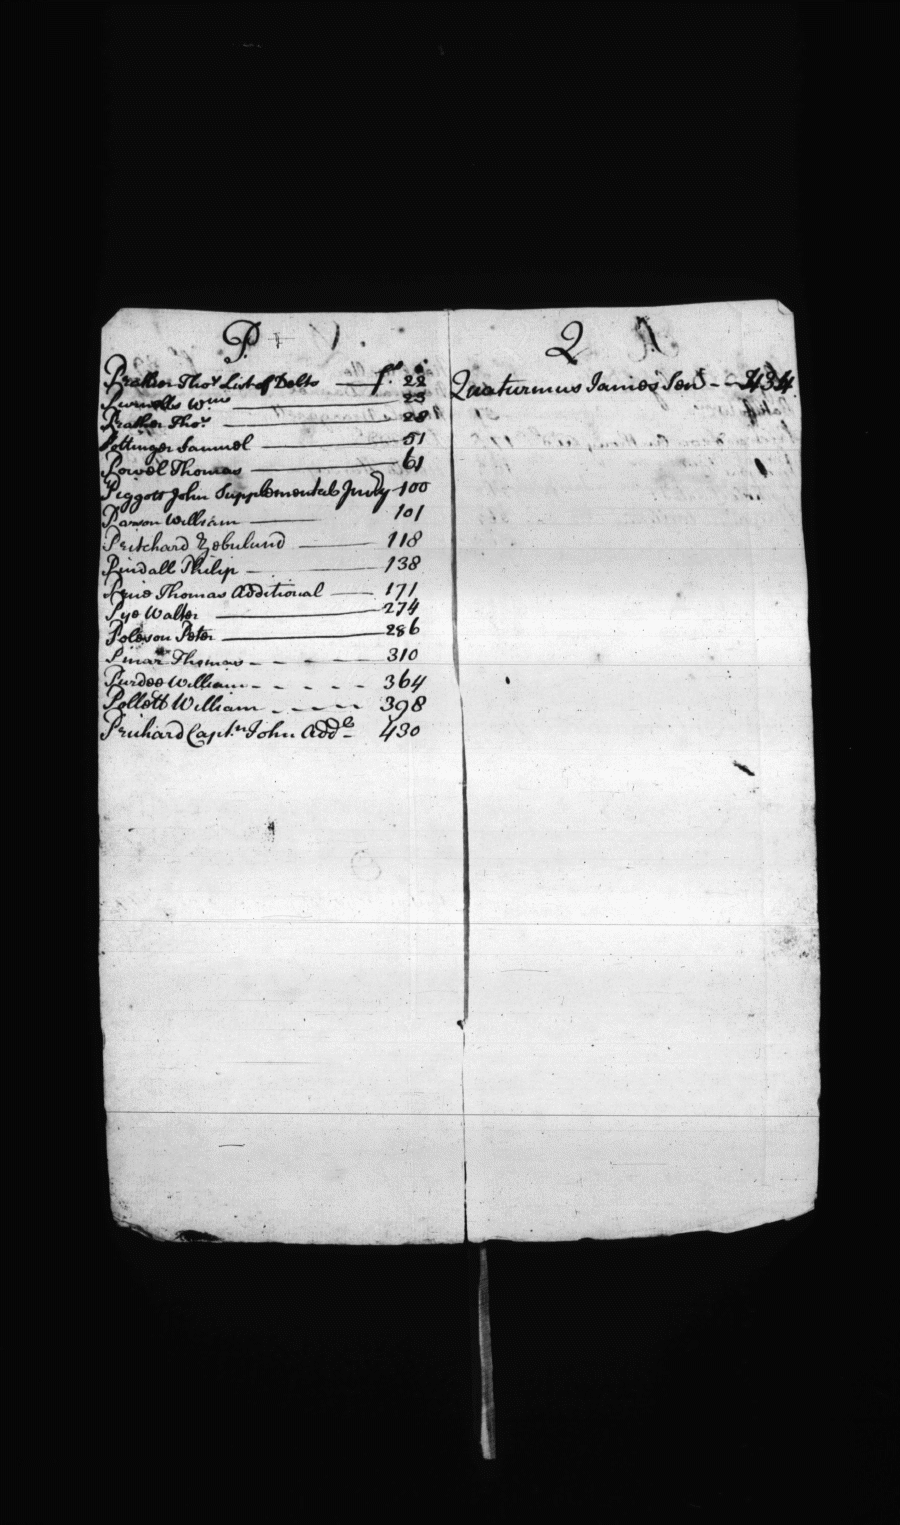 P
Prather Thos List of Debts — fo. 22
Purnells Wm — 23
Prather Thos — 28
Pottinger Samuel — 51
Powel Thomas — 61
Piggott John Supplemental Invty 100
Parson William — 101
Pritchard Zebulund — 118
Pindall Philip — 138
Thomas Additional — 171
Pye Walter — 274
Poleson Peter — 286
Pinar Thomas - - - - 310
Purdee William - - - - - 364
Pollett William - - - - 398
Prichard Captn John Addl - 430
Q
Quaturmus James Senr - - 434